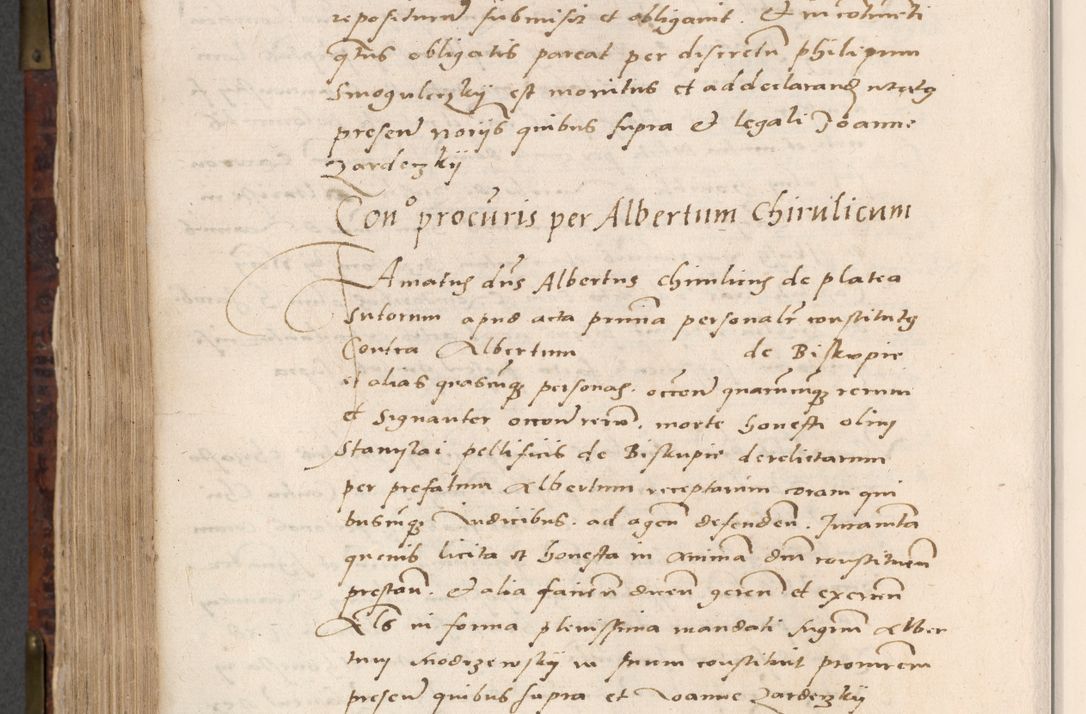 reposituru͂ submisit et obligavit. Et in co͂tine͂ti
qtus obligatis pareat per discretu͂ philippum
Smogulerzky est monitus et ad declarand utrq
presen͂ noriis quibus supra et legali Joanne
Zardeczky
Con° procuris per Albertum Chirulicum
Famatus dn͂s Albertus Chirulicus de platea
Sutorum apud acta pnn͂ia personalr͂ constitutq
Contra Albertum de Biskupie
et alias quascu͂qȝ personas. occe͂ne quarumcu͂qȝ rerum
et Signanter occone͂ reru͂. morte honesti olim
Stanislai pellificis de Biskupie derelictarum
per prefatum Albertum receptarum coram qui
buscu͂qȝ Judicibus. ad agen͂ defenden͂. Jurame͂ta
quevis licita et honesta in anima͂ dn͂i constituen͂
prestan͂. Et alia facien͂ dicen͂ geren͂ et exercen͂
Als in forma plenissima mandati sugrm͂ Alber
tum Modrzewsky in suum constituit procurem
presen͂ quibus supra et Joanne Zardeczky